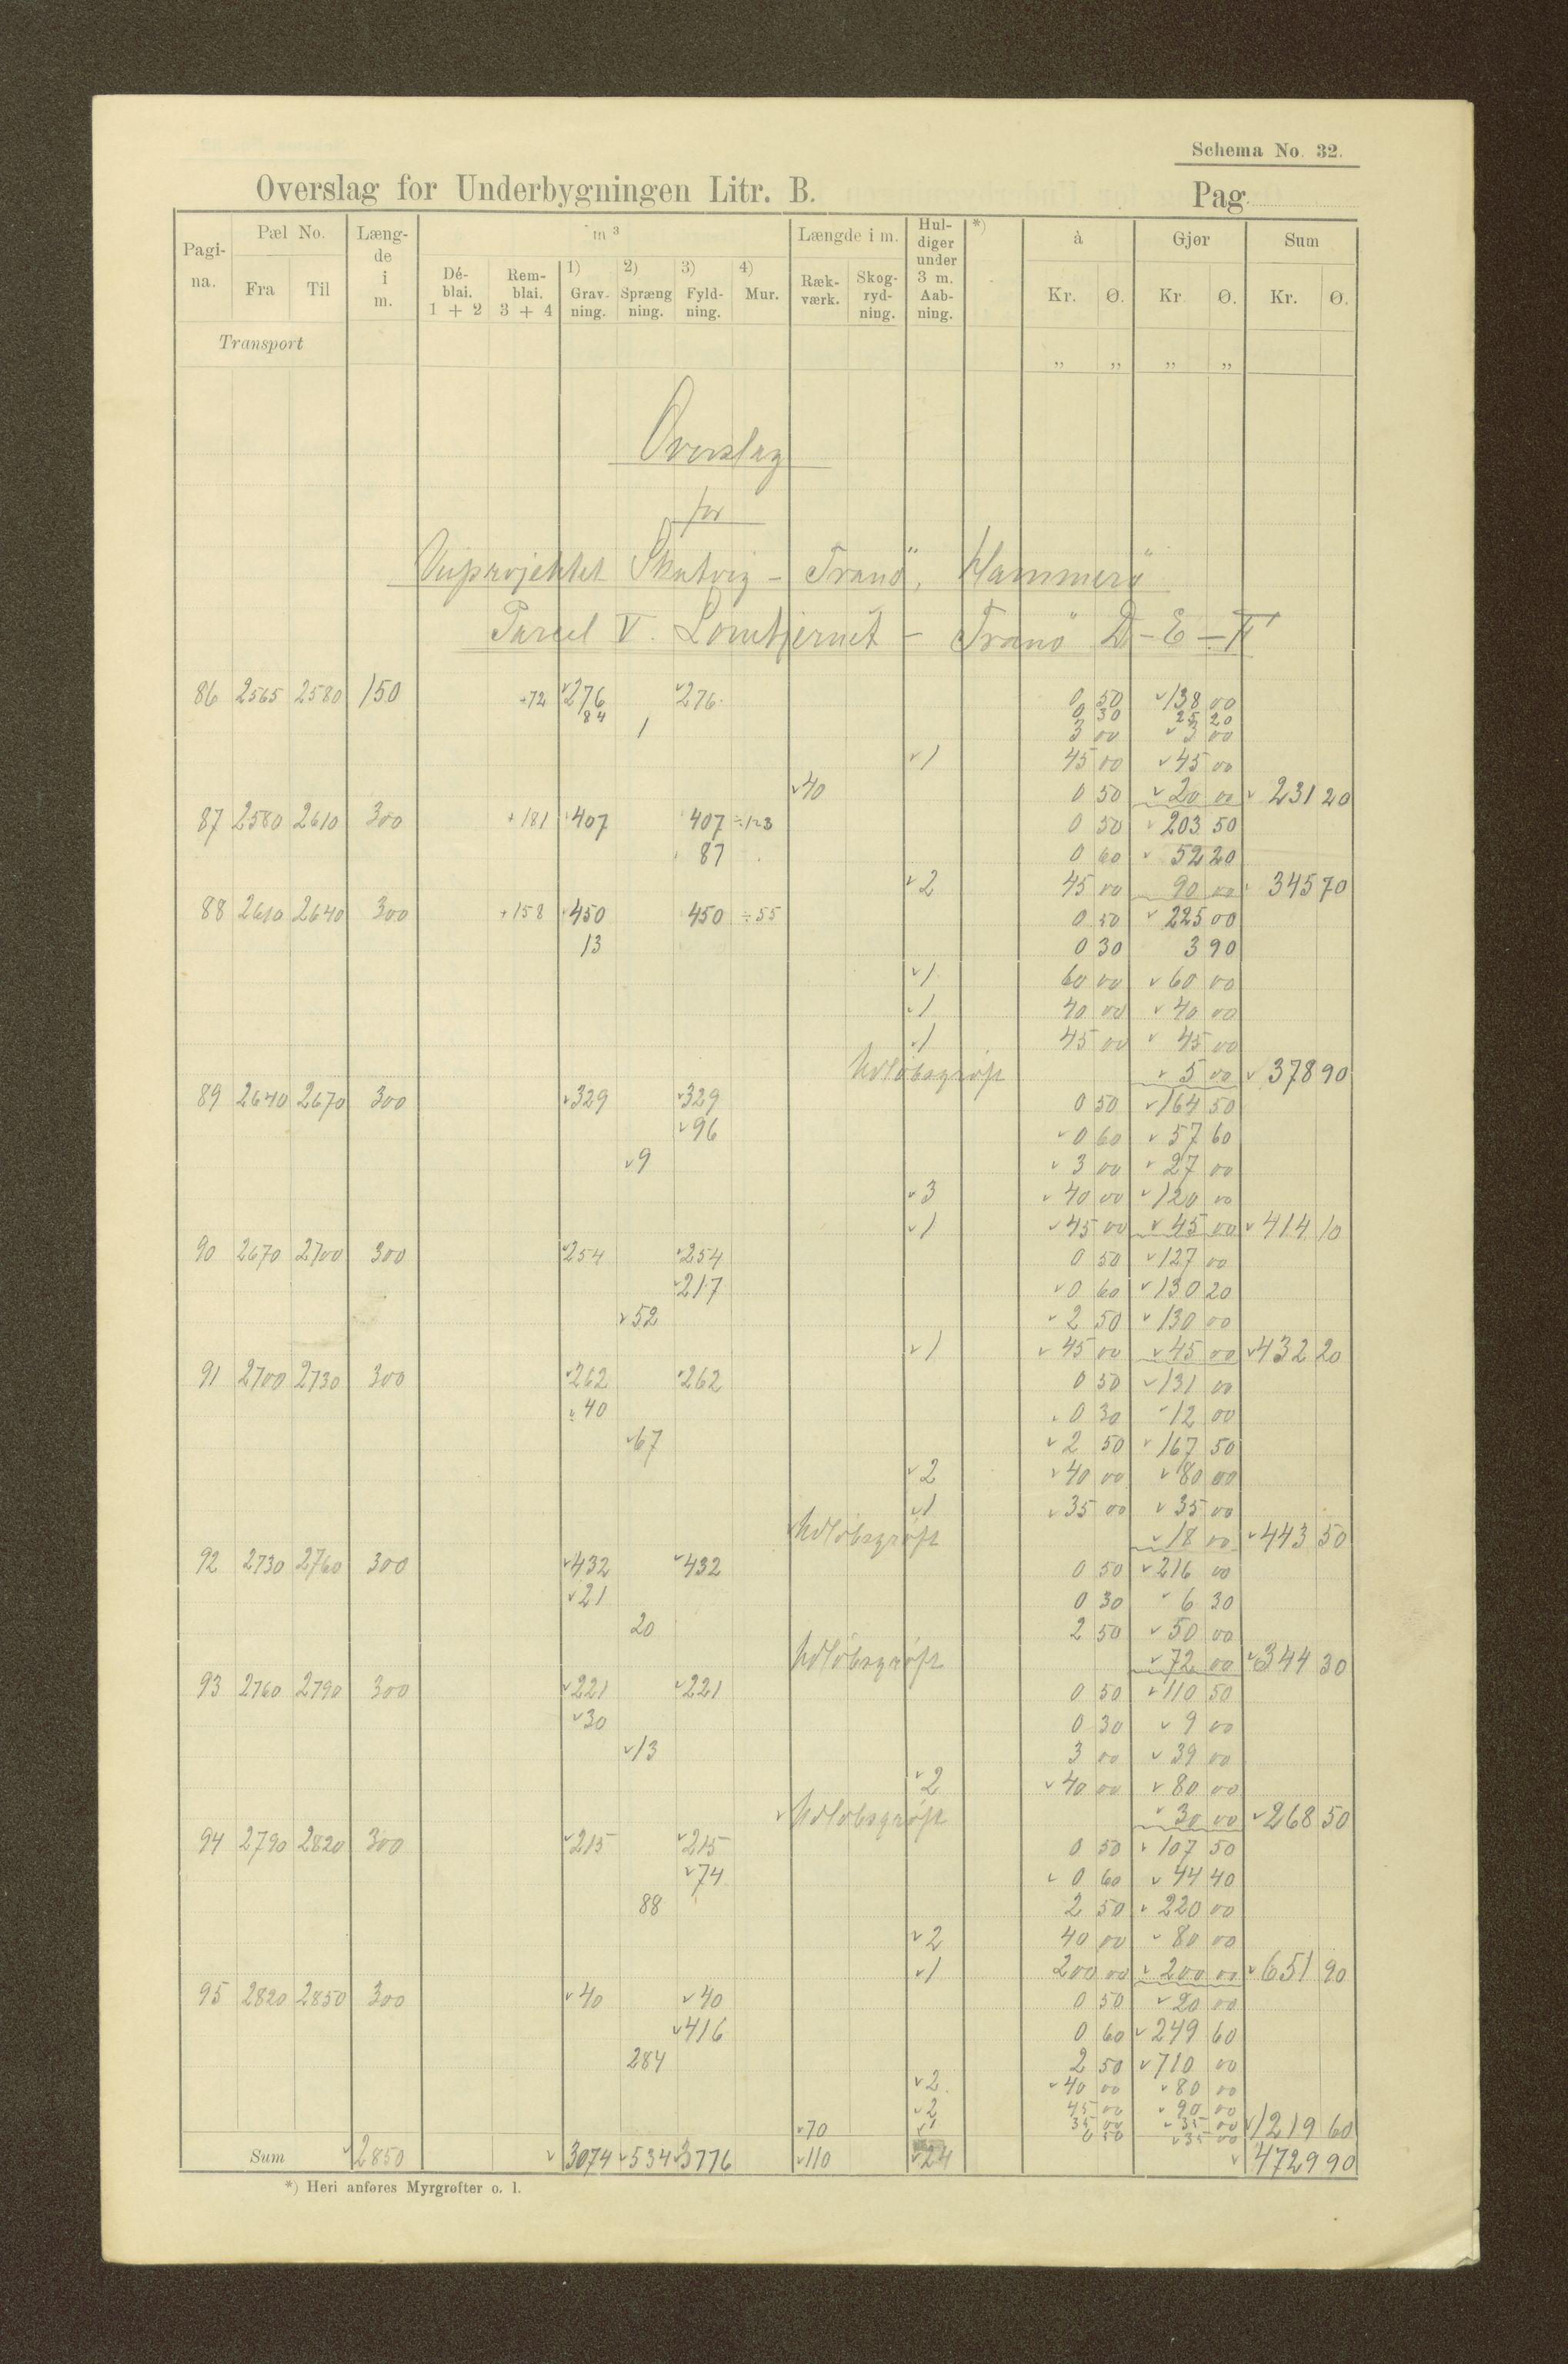 Schema No. 32.
Overslag for Underbygningen Litr. B. Pag.
Pagina. Pæl No. Fra Til Længde i m. m³ Déblai. 1 + 2 Remblai. 3 + 4 1) Gravning. 2) Sprængning. 3) Fyldning. 4) Mur. Længde i m. Rækværk. Skogrydning. Huldiger under 3 m. Aabning. *) à Kr. Ø. Gjør Kr Ø. Sum Kr. Ø.
Transport „ „ „ „
Overslag
for
Veiprojektet Skutvig - Tranö, Hammerö
Parcel V. Lomtjernet - Tranö D - E - F
86 2565 2580 150 -72 276 276 0 50 138 00
84 0 30 25 20
1 3 00 3 00
1 45 00 45 00
40 0 50 20 00 231 20
87 2580 2610 300 +181 407 407 ÷123 0 50 203 50
87 0 60 52 20
2 45 00 90 00 345 70
88 2610 2640 300 +158 450 450 ÷55 0 50 225 00
13 0 30 3 90
1 60 00 60 00
1 40 00 40 00
1 45 00 45 00
Udløbsgrøft 5 00 378 90
89 2640 2670 300 329 329 0 50 164 50
96 0 60 57 60
9 3 00 27 00
3 40 00 120 00
1 45 00 45 00 414 10
90 2670 2700 300 254 254 0 50 127 00
217 0 60 130 20
52 2 50 130 00
1 45 00 45 00 432 20
91 2700 2730 300 262 262 0 50 131 00
40 0 30 12 00
67 2 50 167 50
2 40 00 80 00
1 35 00 35 00
Udløbsgrøft 18 00 443 50
92 2730 2760 300 432 432 0 50 216 00
21 0 30 6 30
20 2 50 50 00
Udløbsgrøft 72 00 344 30
93 2760 2790 300 221 221 0 50 110 50
30 0 30 9 00
13 3 00 39 00
2 40 00 80 00
Udløbsgrøft 30 00 268 50
94 2790 2820 300 215 215 0 50 107 50
74 0 60 44 40
88 2 50 220 00
2 40 00 80 00
1 200 00 200 00 651 90
95 2820 2850 300 40 40 0 50 20 00
416 0 60 249 60
284 2 50 710 00
2 40 00 80 00
2 45 00 90 00
1 35 00 35 00
70 0 50 35 00 1219 60
Sum 2850 3074 534 3776 110 24 4729 90
*) Heri anføres Myrgrøfter o. l.